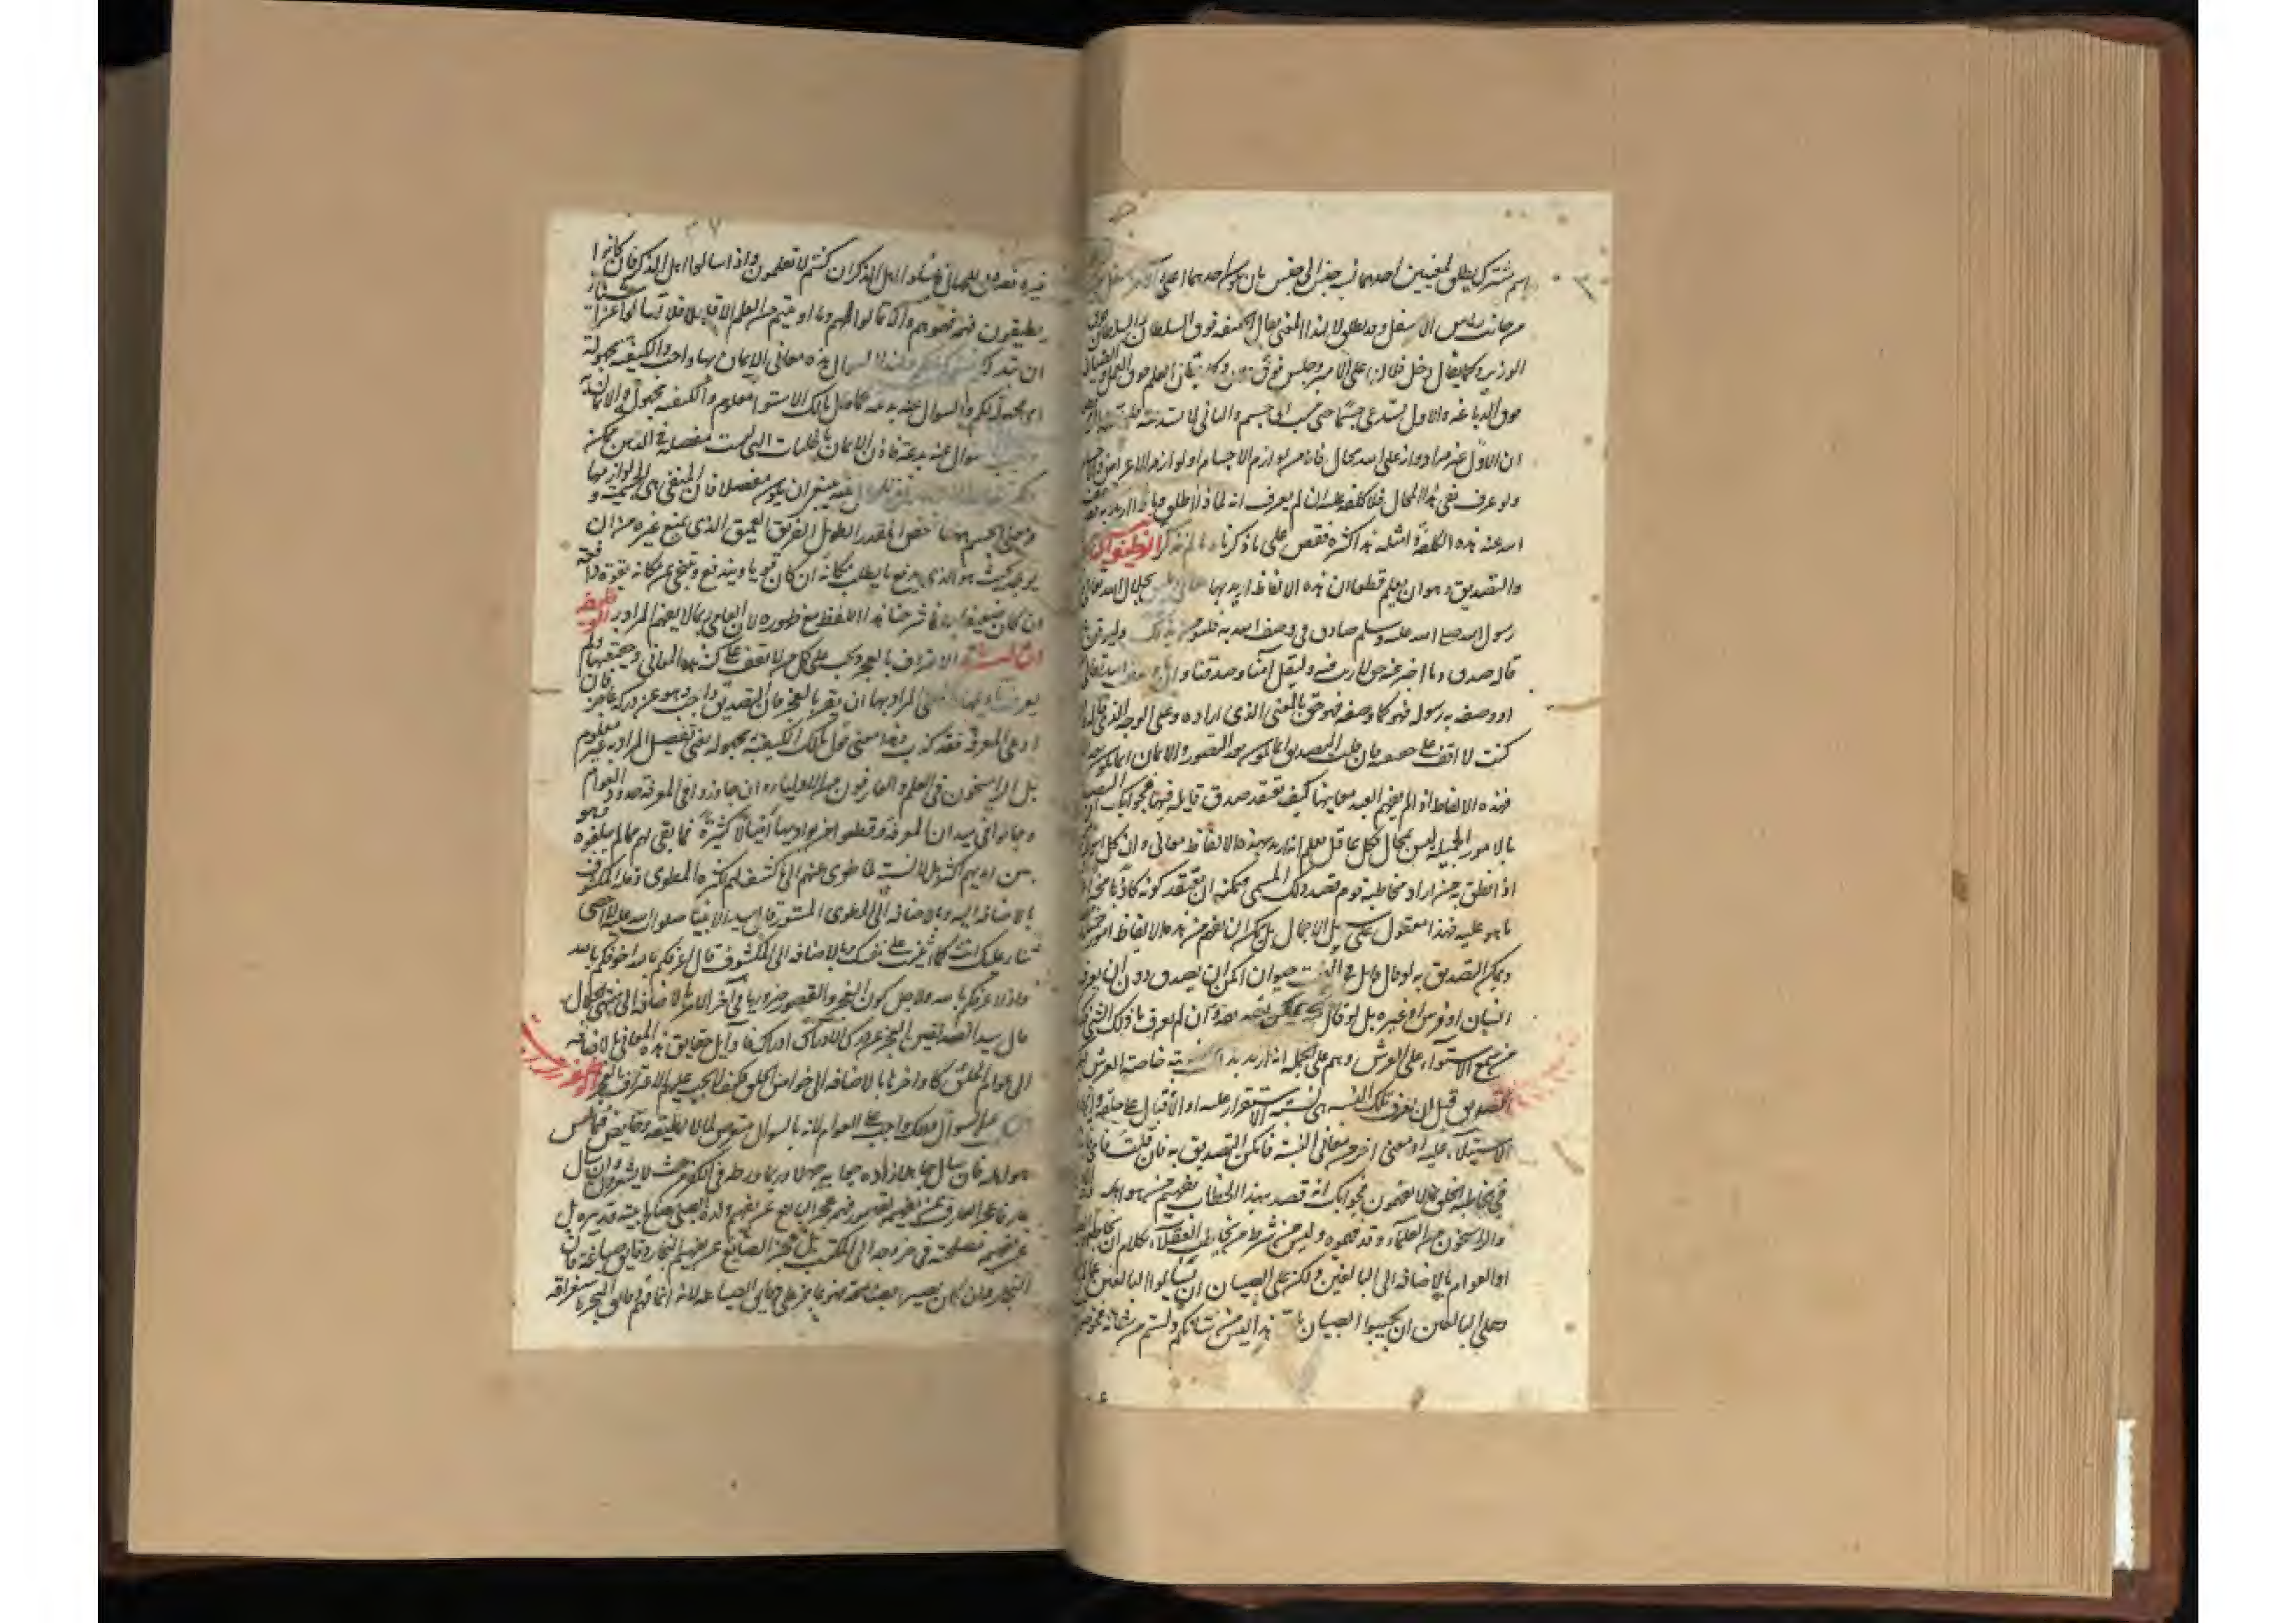 اسم مشترك يطلق لمعنيين احدهما نسبة جسم الى جسم بان يكون احدهما اعلى
من جانب راس الاسفل وقد يطلق لا لهذا المعنى يقال الخليفة فوق السلطان والسلطان فوق
الوزير وكما يقال دخل فلان على الامير وجلس فوق وكما يقال العلم فوق العمل والصياغة
فوق الدباغة والاول يستدعى جسما حتى ينسب الى جسم والثاني لا يستدعيه
ان الاول غير مراد وانه على الله محال فانه من لوازم الاجسام او لوازم الاعراض
ولو عرف نفى هذا المحال فلا كلفة عليه ان لم يعرف انه لماذا اطلق وماذا اريد به
الله عنه هذه الكلفة امثلة هذا كثيرة فقس على ما ذكرناه ما لم نذكر الوظيفة الثانية
والتصديق وهو ان يعلم قطعا ان هذه الالفاظ اريد بها بجلال الله تعالى
رسول الله صلى الله عليه وسلم صادق فى وصف الله به فليؤمن بذلك وليوقن
قاله صدق وما اخبر عنه حق لا ريب فيه وليقل آمنا وصدقنا وان ما وصف الله تعالى
او وصفه به رسوله فهو كما وصفه فهو حق بالمعنى الذى اراده وعلى الوجه الذى قاله
كنت لا اقف على حقيقته فان قلت التصديق انما يكون بعد التصور والايمان انما يكون بعد
فهذه الالفاظ اذا لم يفهم العبد معانيها كيف يعتقد صدق قايله فيها فجوابك
بالامور الجملية ليس بمحال فكل عاقل يعلم انه اريد بهذه الالفاظ معانى وان كل اسم
اذا نطق به من اراد مخاطبة قوم قصد ذلك المسمى فيمكنه ان يعتقد كونه كاذبا مخبرا
ما هو عليه فهذا معقول على سبيل الاجمال بل يمكن ان يفهم من هذه الالفاظ امور
ويمكن التصديق به لو قال قائل فى البيت حيوان امكن ان يصدق دون ان يعرف
انسان او فرس او غيره بل لو قال فيه شيء يمكن تصديقه وان لم يعرف ما ذلك الشيء
من سمع الاستواء على العرش وفهم على الجملة انه اريد بذلك نسبة خاصة العرش
التصديق قبل ان يعرف تلك النسبة هى نسبة الاستقرار عليه او الاقبال على خلقه
الاستيلاء عليه او معنى اخر من معانى النسبة فامكن التصديق به فان قلت
فى مخاطبة الخلق بما لا يفهمون فجوابك انه قصد بهذا الخطاب تفهيم من هو اهله
والراسخون من العلماء وقد فهموه وليس من شرط من يخاطب العقلاء بكلام ان يخاطبهم
او العوام بالاضافة الى البالغين ولكن على الصبيان ان يسألوا البالغين
وعلى البالغين ان يجيبوا الصبيان بان هذا ليس من شانكم ولستم من اهله فخوضوا
غيره فقد قيل للجهال فاسئلوا اهل الذكر ان كنتم لا تعلمون واذا سالوا اهل الذكر فان كانوا
يطيقون فهمه فهموهم والا قالوا لهم وما اوتيتم من العلم الا قليلا فلا تسالوا عن اشياء
ان تبد لكم تسؤكم ما لكم ولهذا السؤال هذه معانى الايمان بها واجب والكيفية مجهولة
اى مجهولة لكم والسؤال عنه بدعة كما قال مالك الاستوا معلوم والكيفية مجهولة والايمان به
واجب والسوال عنه بدعة فاذن الايمان بالجمليات التى ليست مفصلة فى الذهن ممكن
ينبغى ان يكون مفصلا فان المنفى هى الجسمية ولوازمها
ونعنى بالجسم هاهنا شخص المقدر الطويل العريق العميق الذى يمنع غيره من ان
يوجد بحيث هو الذى يدفع ما يطلب مكانه ان كان قويا ويندفع ويتنحى عن مكانه بقوة دافعه
ان كان ضعيفا وانما شرحنا هذا اللفظ مع ظهوره لان العامى ربما لا يفهم المراد به الوظيفة
الثالثة الاعتراف بالعجز ويجب على كل من لا يقف على كنه هذه المعانى وحقيقتها ولم
يعرف تاويلها والمعنى المراد بها ان يقر بالعجز فان التصديق واجب وهو عن دركه عاجز فان
ادعى المعرفة فقد كذب وهذا معنى قول مالك الكيفية مجهولة يعنى تفصيل المراد به غير معلوم
بل الراسخون فى العلم والعارفون من الاولياء وان جاوزوا فى المعرفة حدود العوام
وجالوا فى ميدان المعرفة وقطعوا من بواديها اميالا كثيرة فما بقى لهم مما لم يبلغوه وهو
بين ايديهم اكثر بل لا نسبة لما طوى عنهم الى ما كشف لهم لكثرة المطوى وقلة المكشوف
بالاضافة اليه وبالاضافة الى المطوى المستور قال سيد الانبيا صلوات الله عليه لا احصى
ثناء عليك انت كما اثنيت على نفسك وبالاضافة الى المكشوف قال اعرفكم بالله اخوفكم بالله
وانا اعرفكم بالله ولاجل كون العجز والقصور ضروريا فى آخر الامر بالاضافة الى منتهى الحال
قال سيد الصديقين العجز عن درك الادراك ادراك فاوايل حقايق هذه المعانى بالاضافة
الى عوام الخلق كاواخرها بالاضافة الى خواص الخلق فكيف لا يجب عليهم الاعتراف بالعجز
عن السوال وذلك واجب على العوام لانه بالسوال متعرض لما لا يطيقه وخايض فيما ليس
هو اهله فان سال جاهلا زاده جوابه جهلا وربما ورطه فى الكفر من حيث لا يشعر وان سال
عارفا عجز العارف عن تفهيمه لقصور فهمه عجز البالغ عن تفهيم ولده الصبى مصالح بيته وتدبيره بل
عن تفهيمه مصلحته فى خروجه الى المكتب بل عجز الصايغ عن تفهيم النجار دقايق صياغته فان
النجار وان كان بصيرا بصناعته فهو عاجز عن دقايق الصياغة لانه انما فهم دقايق النجر باستغراقه